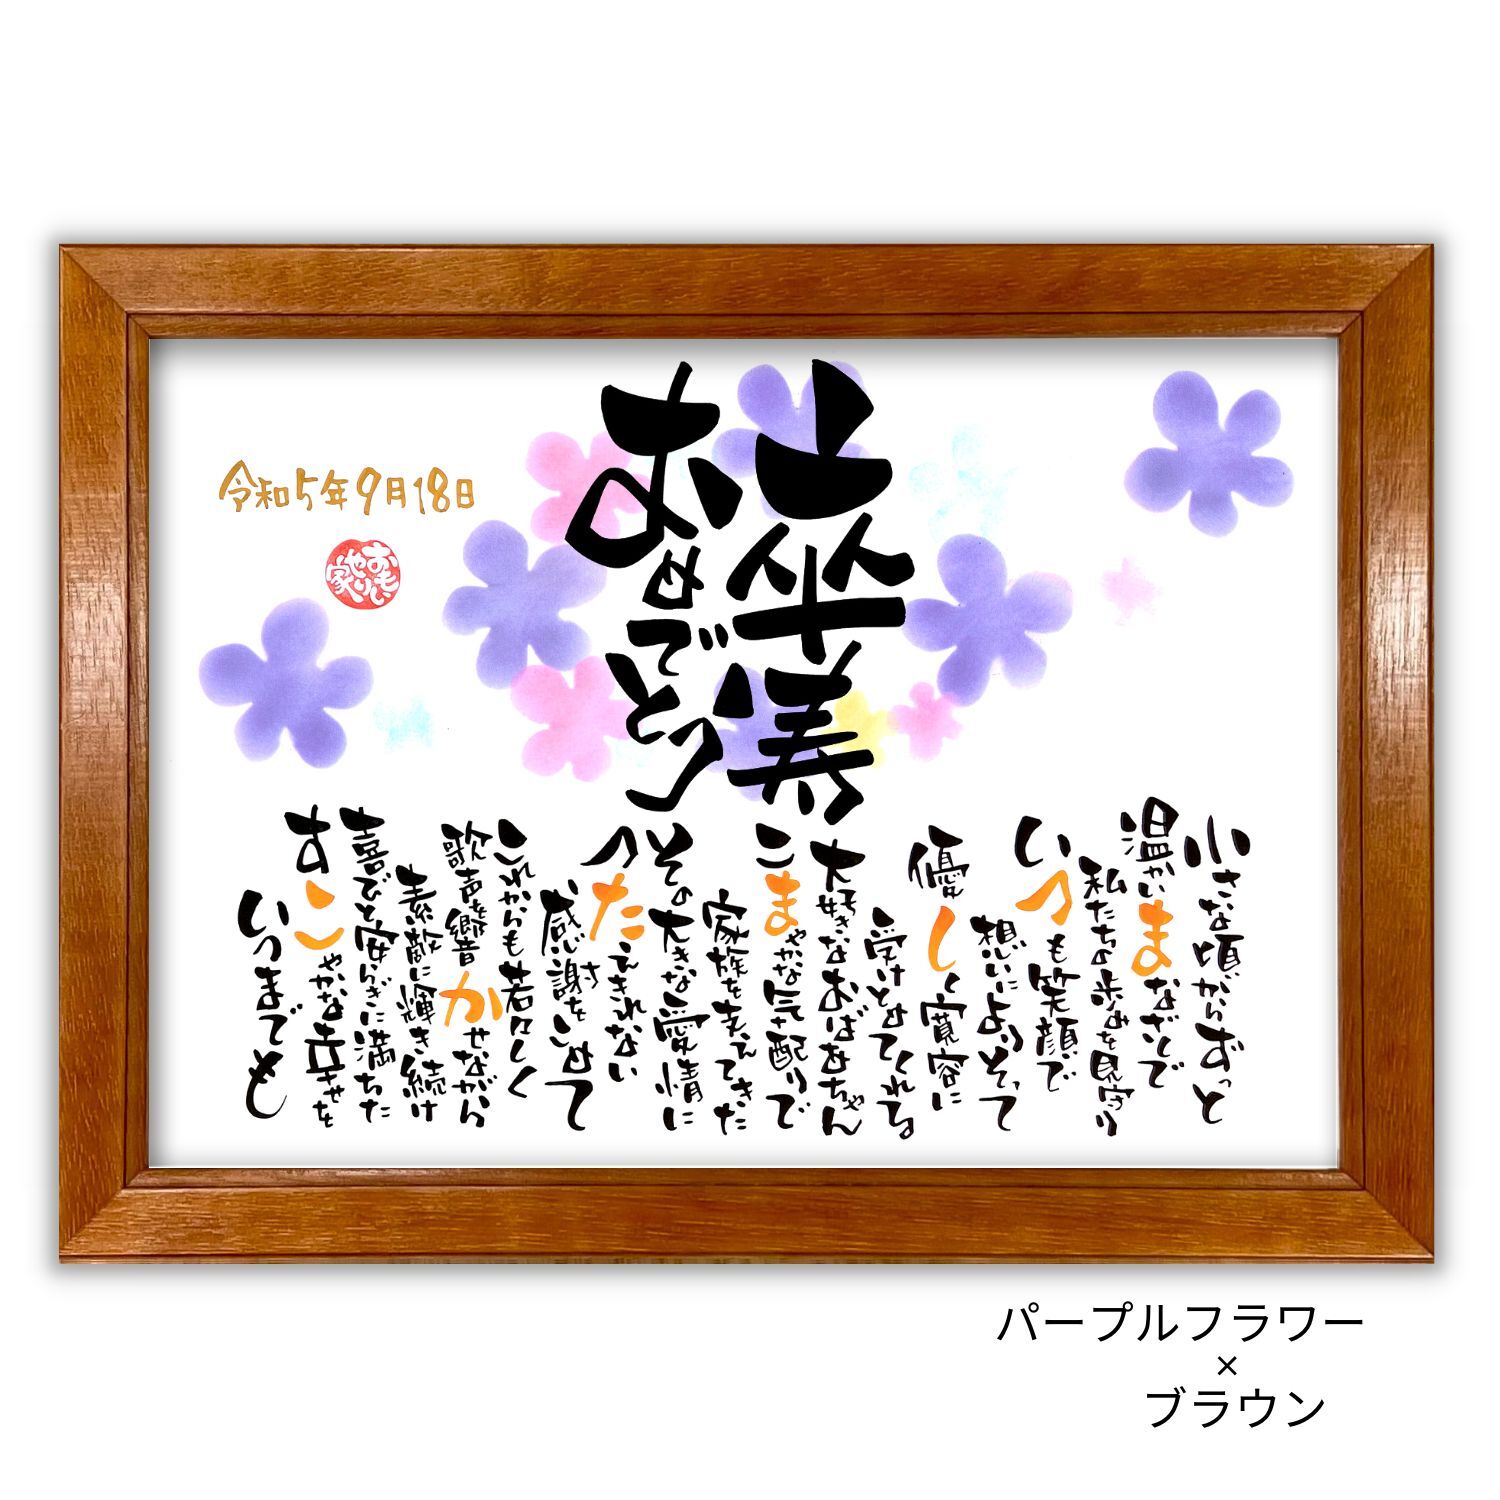 卒寿
おめでとう
令和5年9月18日
おもい
やり
家
小さな頃からずっと
温かいまなざしで
私たちの歩みを見守り
いつも笑顔で
想いによりそって
優しく寛容に
受けとめてくれる
大好きなおばあちゃん
こまやかな気配りで
家族を支えてきた
その大きな愛情に
つたえきれない
感謝をこめて
これからも若々しく
歌声を響かせながら
素敵に輝き続け
喜びと安らぎに満ちた
すこやかな幸せを
いつまでも
パープルフラワー
×
ブラウン